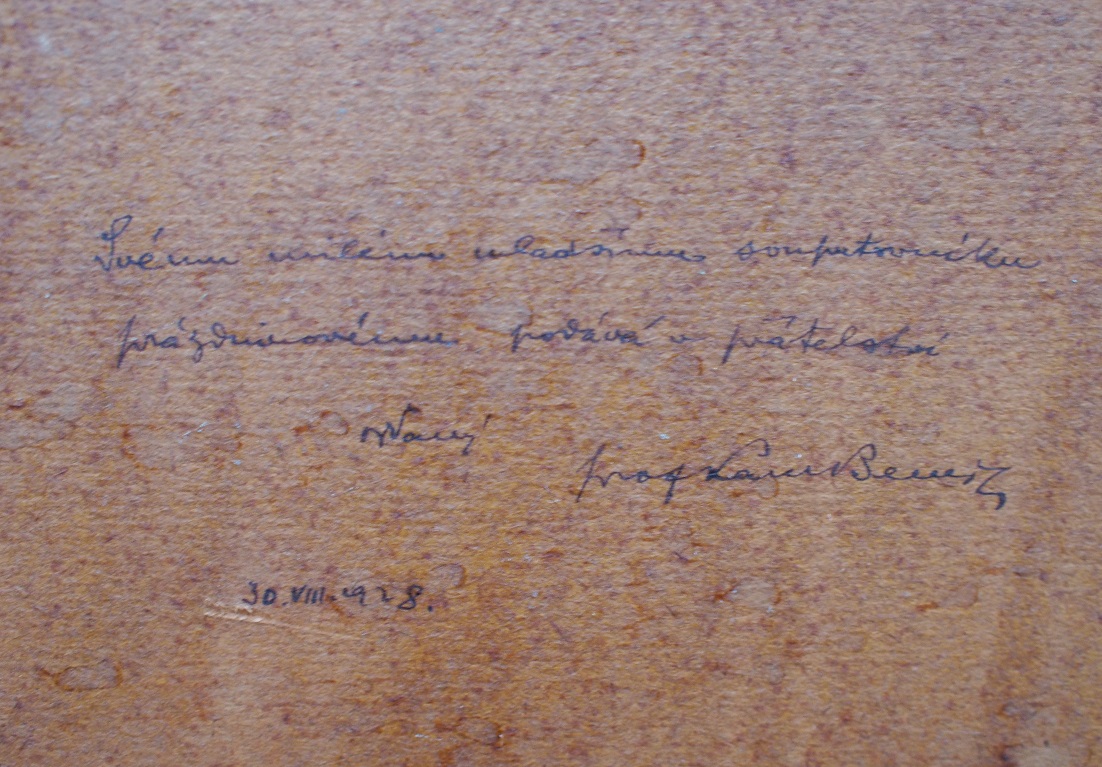 Svému milému mladšímu souputovníku
prázdninovému podává v přátelství
oddaný
prof
30.VIII.1928.